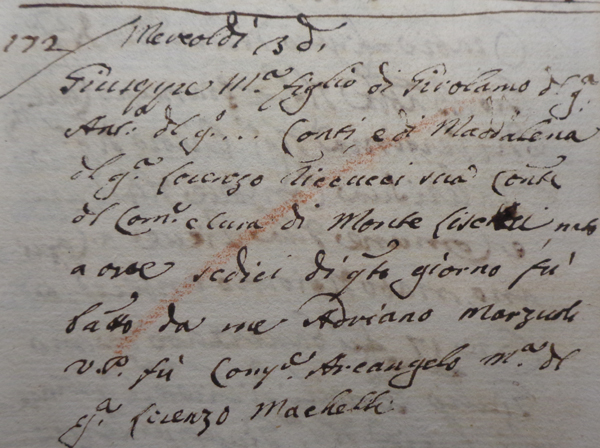 172 Mercoldì 3 dì
Giuseppe M.ª figlio di Girolamo del q.ᵐ
Ant.º del q.ᵐ ... Conti e di Maddalena
del q.ᵐ Lorenzo Ticcucci sua Conte
del Com.e e cura di Monte nato
a ore sedici di q.to giorno fù
batt.o da me Adriano Marzuoli
V.P. fù Comp.e Arcangelo M.ª del
q.ᵐ Lorenzo Machelli